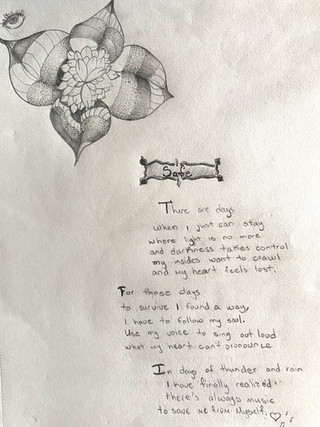 Safie
There are days
when I just can stay
where light is no more
and darkness takes control
my insides want to crawl
and my heart feels lost.
For those days
to survive I found a way,
I have to follow my soul.
Use my voice to sing out loud
what my heart can't pronounce
In days of thunder and rain
I have finally realized
there's always music
to save me from Myself.